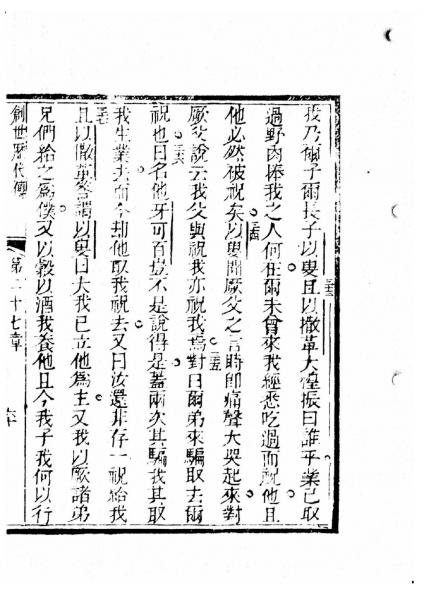 我乃爾子爾長子以叟且以撒革大惶振曰誰乎業已取
三三
過野肉捧我之人何在爾未曾來我經悉吃過而祝他且
他必然被祝矣以叟聞厥父之言時即痛聲大哭起來對
三四
厥父說云我父與祝我亦祝我焉對曰爾弟來騙取去爾
三五
祝也曰名他牙可百豈不是說得是蓋兩次其騙我其取
三六
我生業去而今却他取我祝去又曰汝還非存一祝給我
且以撒革答謂以叟曰夫我已立他為主又我以厥諸弟
三七
兄們給之為僕又以穀以酒我養他且今我子我何以行
創世歷代傳
第二十七章
六十